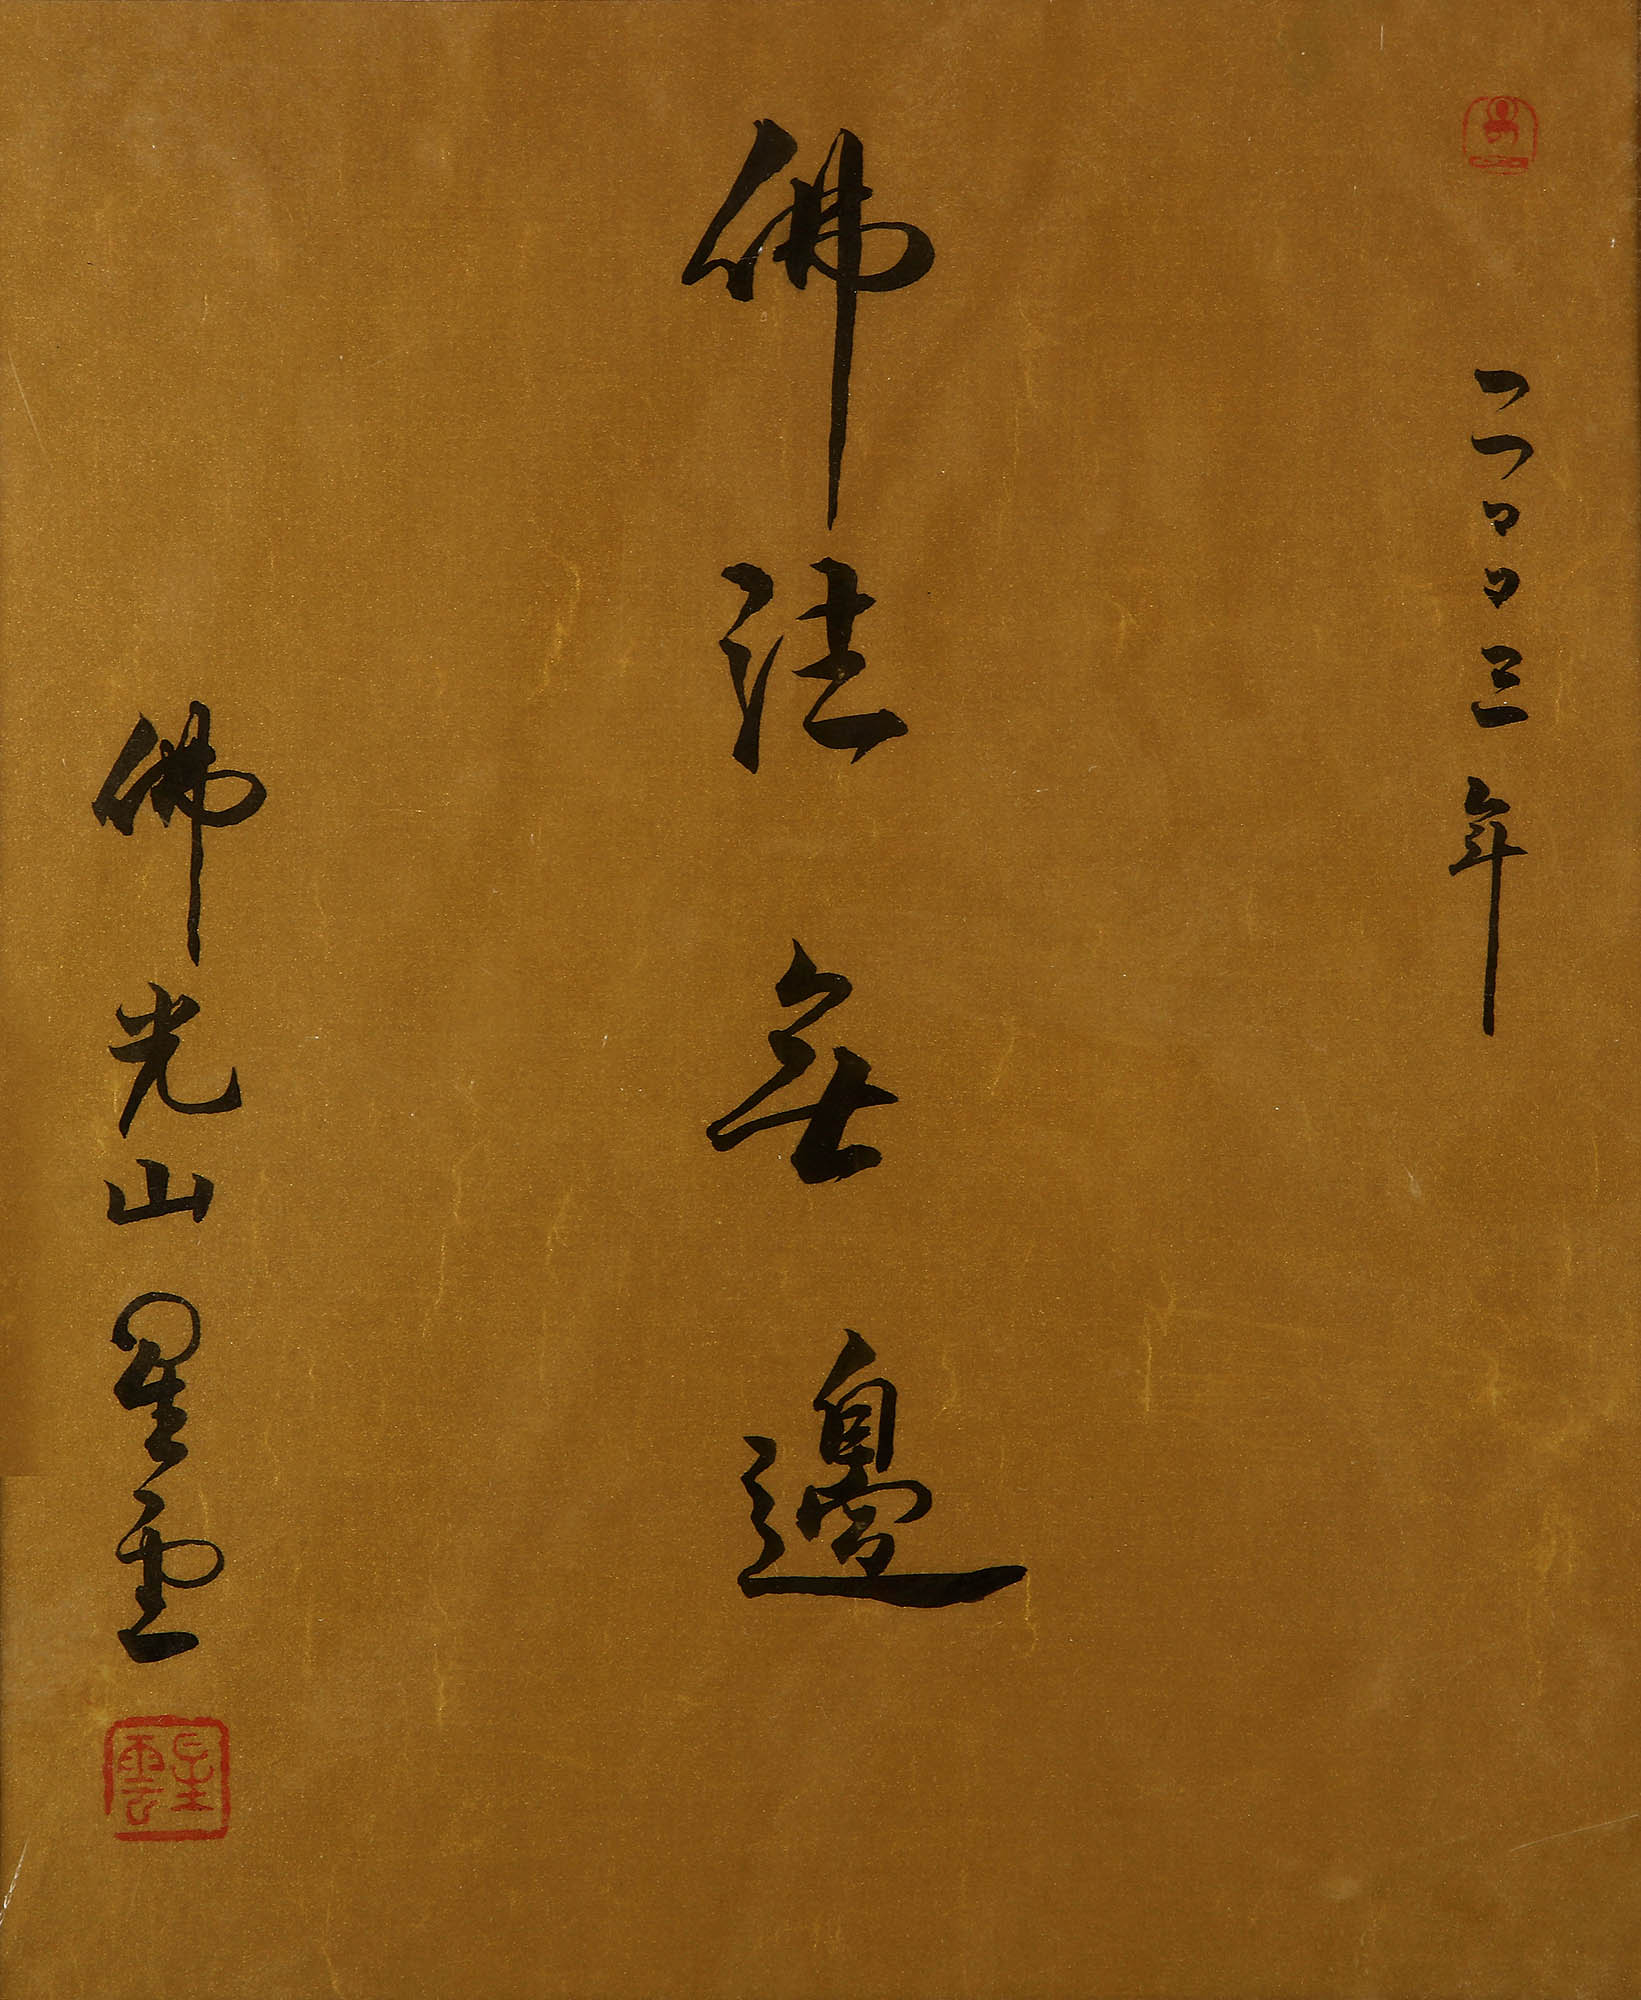 二〇〇三年
佛法無邊
佛光山星雲
星雲